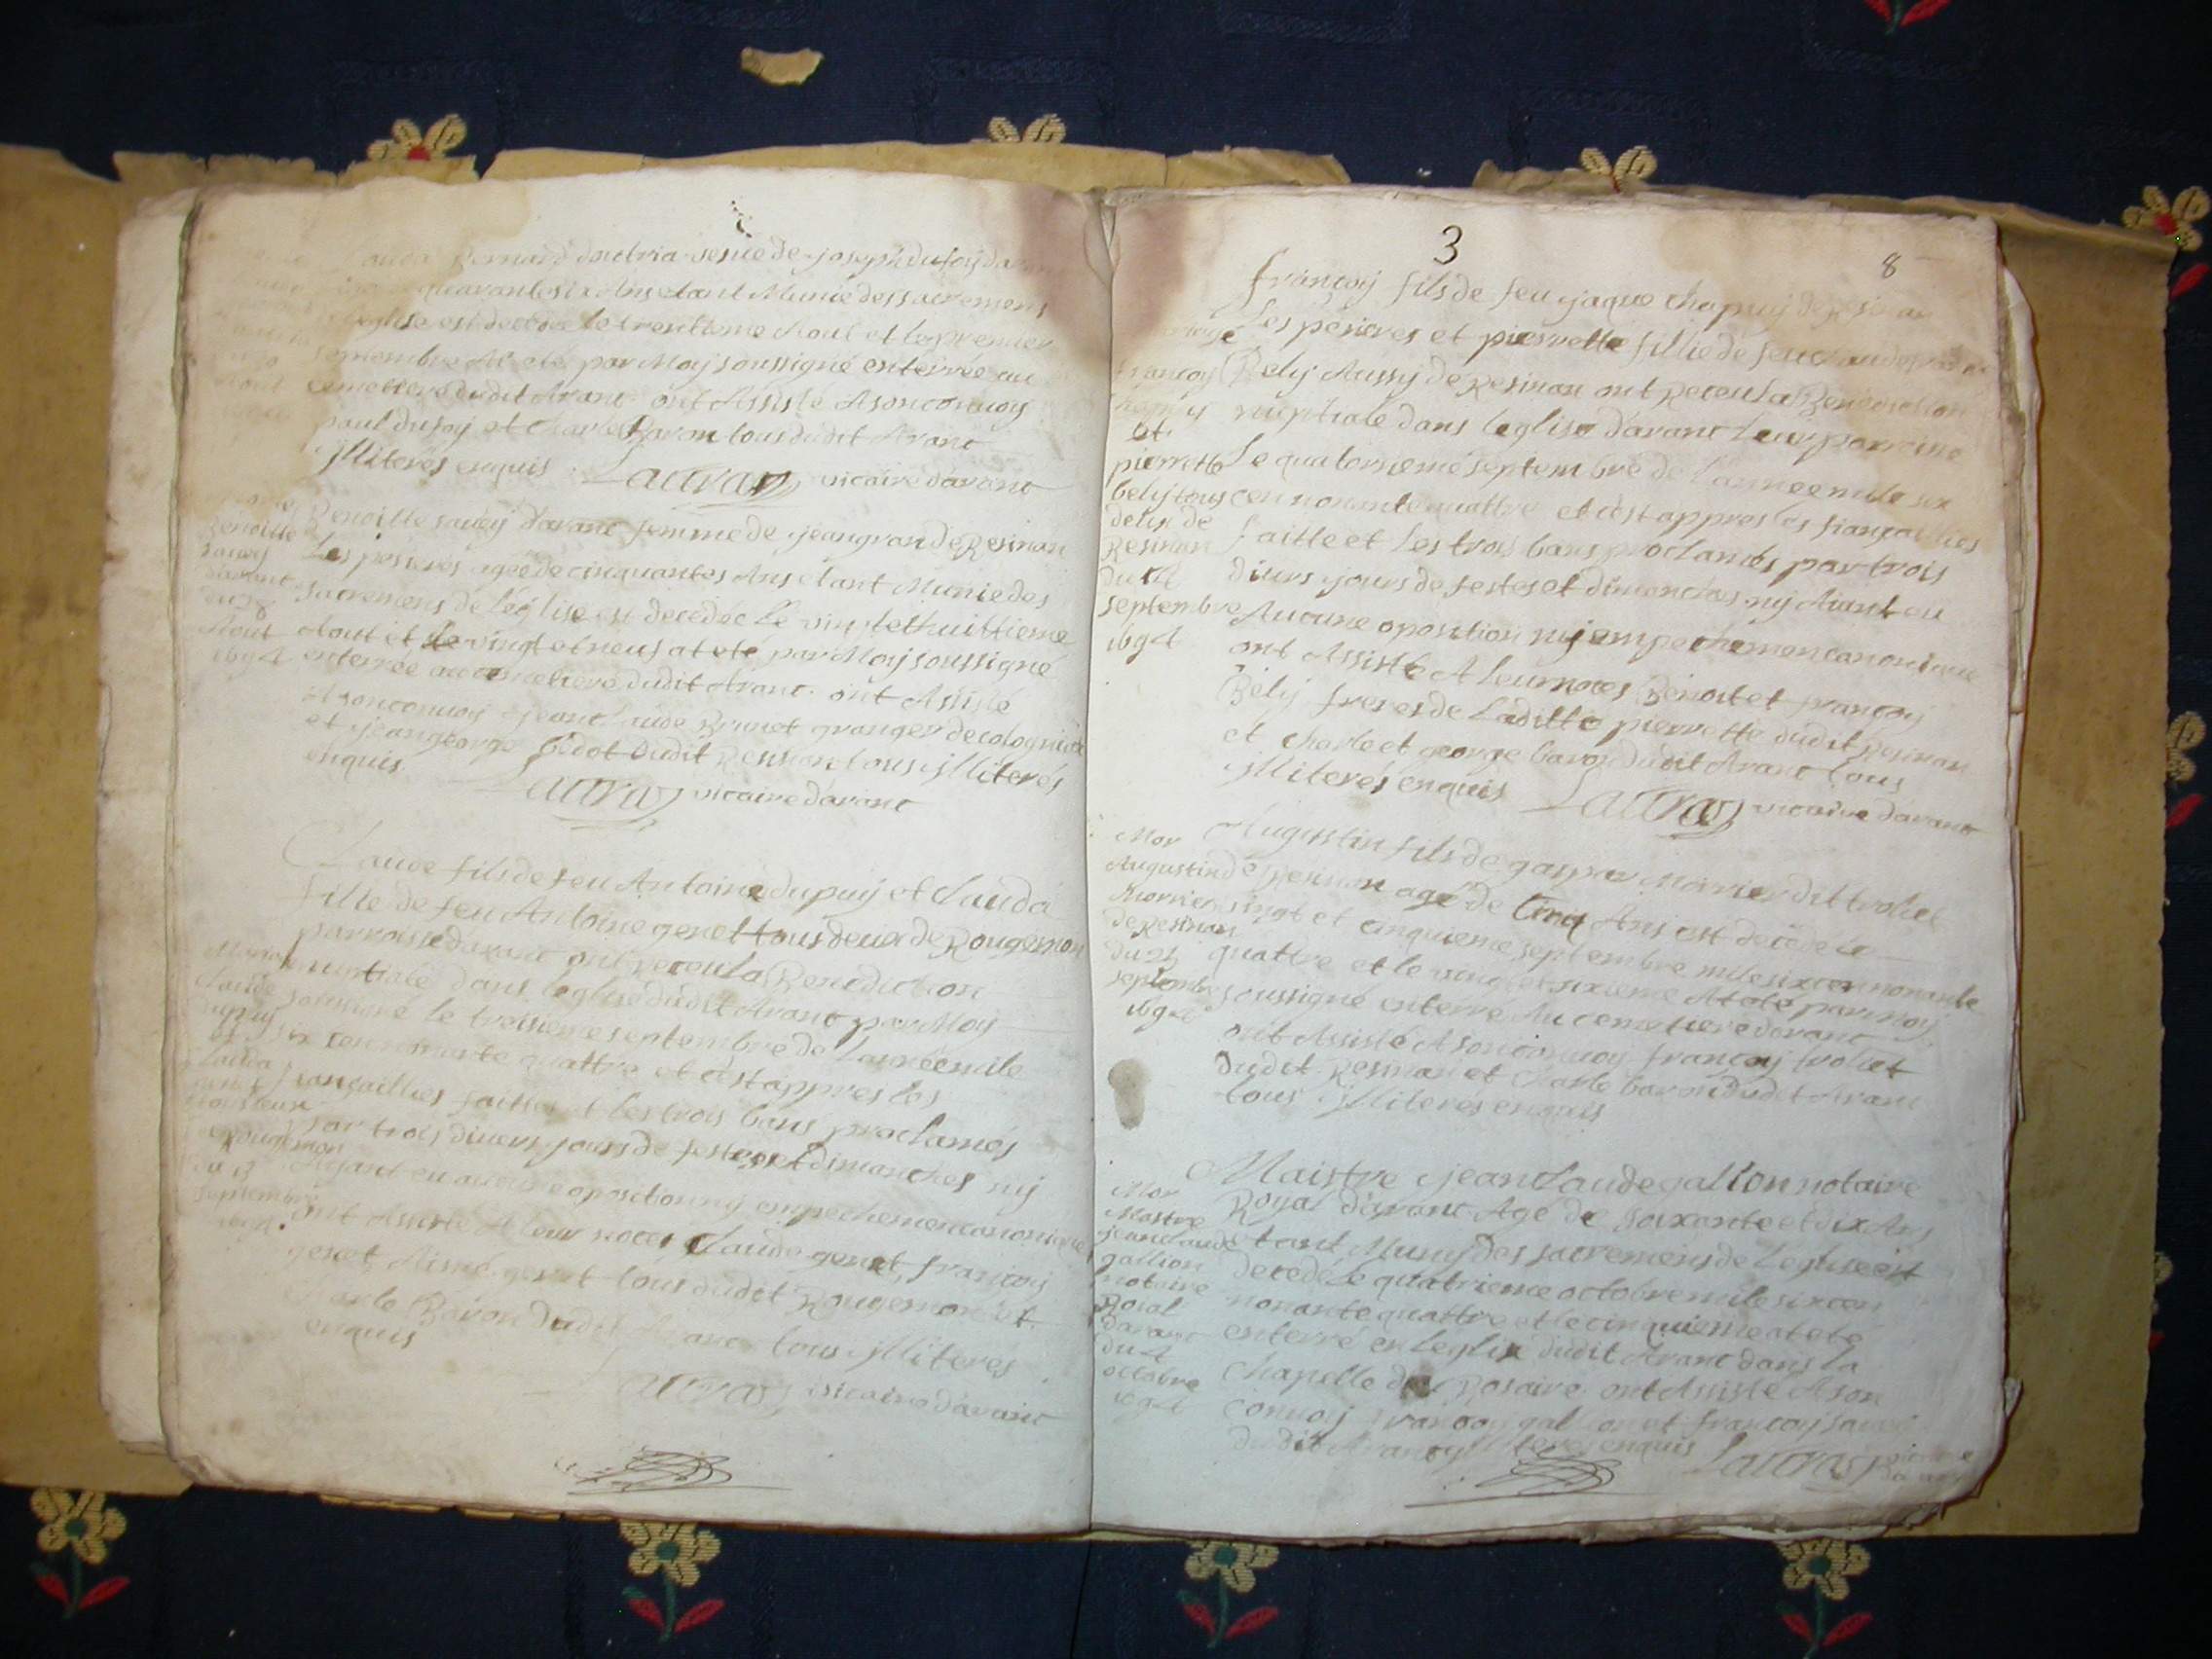 Bernard veuve de joseph dufoy
quarante six Ans etant Munie des sacremens
eglise est decedée le trentieme Aout et le premier
septembre At eté par Moy soussigné enterrée au
cemetiere dudit Aranc ont Assisté A son convoy
paul dufoy et Charle Baron tous dudit Aranc
jlliterés enquis Lauras vicaire d'aranc
Benoitte
savey
d'aranc
du 28
Aout
1694
Benoitte savey d'aranc femme de jean grand de Resinan
Les perieres agée de cinquantes Ans etant Munie des
sacremens de l'église est decedée le vingtethuittieme
Aout et le vingt et neuf at eté par Moy soussigné
enterrée au cemetiere dudit Aranc ont Assisté
A son convoy jean Claude Brunet granger de
et jean george dudit Resinan tous jlliterés
enquis Lauras vicaire d'aranc
Claude
dupuy
et
Clauda
genet
tous deux
de
Rougemon
du 13
septembre
1694
Claude fils de feu Antoine dupuy et Clauda
fille de feu Antoine genet tous deux de Rougemon
parroisse d'aranc ont receu la Benediction
nuptiale dans l'eglise dudit Aranc par Moy
soussigné le treisieme septembre de l'année mile
six cen nonante quattre et c'est appres les
fiançaillies faittes et les trois bans proclamés
par trois divers jours de festes et dimanches nij
Ayant eu aucune oposition nij empechemen canonique
ont Assisté A leur noces Claude genet françoy
genet Aimé genet tous dudit Rougemon et
Charle Baron dudit Aranc tous jlliterés
enquis
Lauras vicaire d'aranc
3
8
mariage
françoy
et
pierrette
bely tous
deux de
Resinan
du 14
septembre
1694
françoy fils de feu jaque chapuy de Resinan
Les perieres et pierrette fillie de feu
Bely Aussy de Resinan ont Receu la Benediction
nuptiale dans leglise d'aranc leur parroisse
Le quatorsieme septembre de l'annee mile six
cen nonante quattre et c'est appres les fiançaillies
faitte et les trois bans proclamés par trois
divers jours de festes et dimanches nij Aiant eu
Aucune oposition nij empechemen canonique
ont Assisté A leur noces Benoit et françoy
Bely freres de laditte pierrette dudit Resinan
et charle et george baron dudit Aranc tous
jlliterés enquis Lauras vicaire d'aranc
Mor
Augustin
Morrier
de Resinan
du 25
septembre
1694
Augustin fils de gaspar Morrier dit troliet
de Resinan agé de Cinq Ans est decede le
vingt et cinquieme septembre mile six cen nonante
quattre et le vingt et sixieme At eté par moy
soussigné enterré Au cemetiere d'aranc
ont Assisté A son convoy françoy troliet
dudit Resinan et Charle baron dudit Aranc
tous jlliterés enquis
Mor
Mastre
jean claude
gallion
notaire
Roial
d'aranc
du 4
octobre
1694
Maistre jean Claude gallion notaire
Royal d'aranc Agé de soixante et dix Ans
etant Muny des sacremens de l'eglise est
decedé le quatrieme octobre mile six cen
nonante quattre et le cinquieme at eté
enterré en leglise dudit Aranc dans la
Chapelle du Rosaire ont Assisté A son
convoy françoy gallion et françoy savey
dudit Aranc jlliterés enquis Lauras vicaire
d'aranc